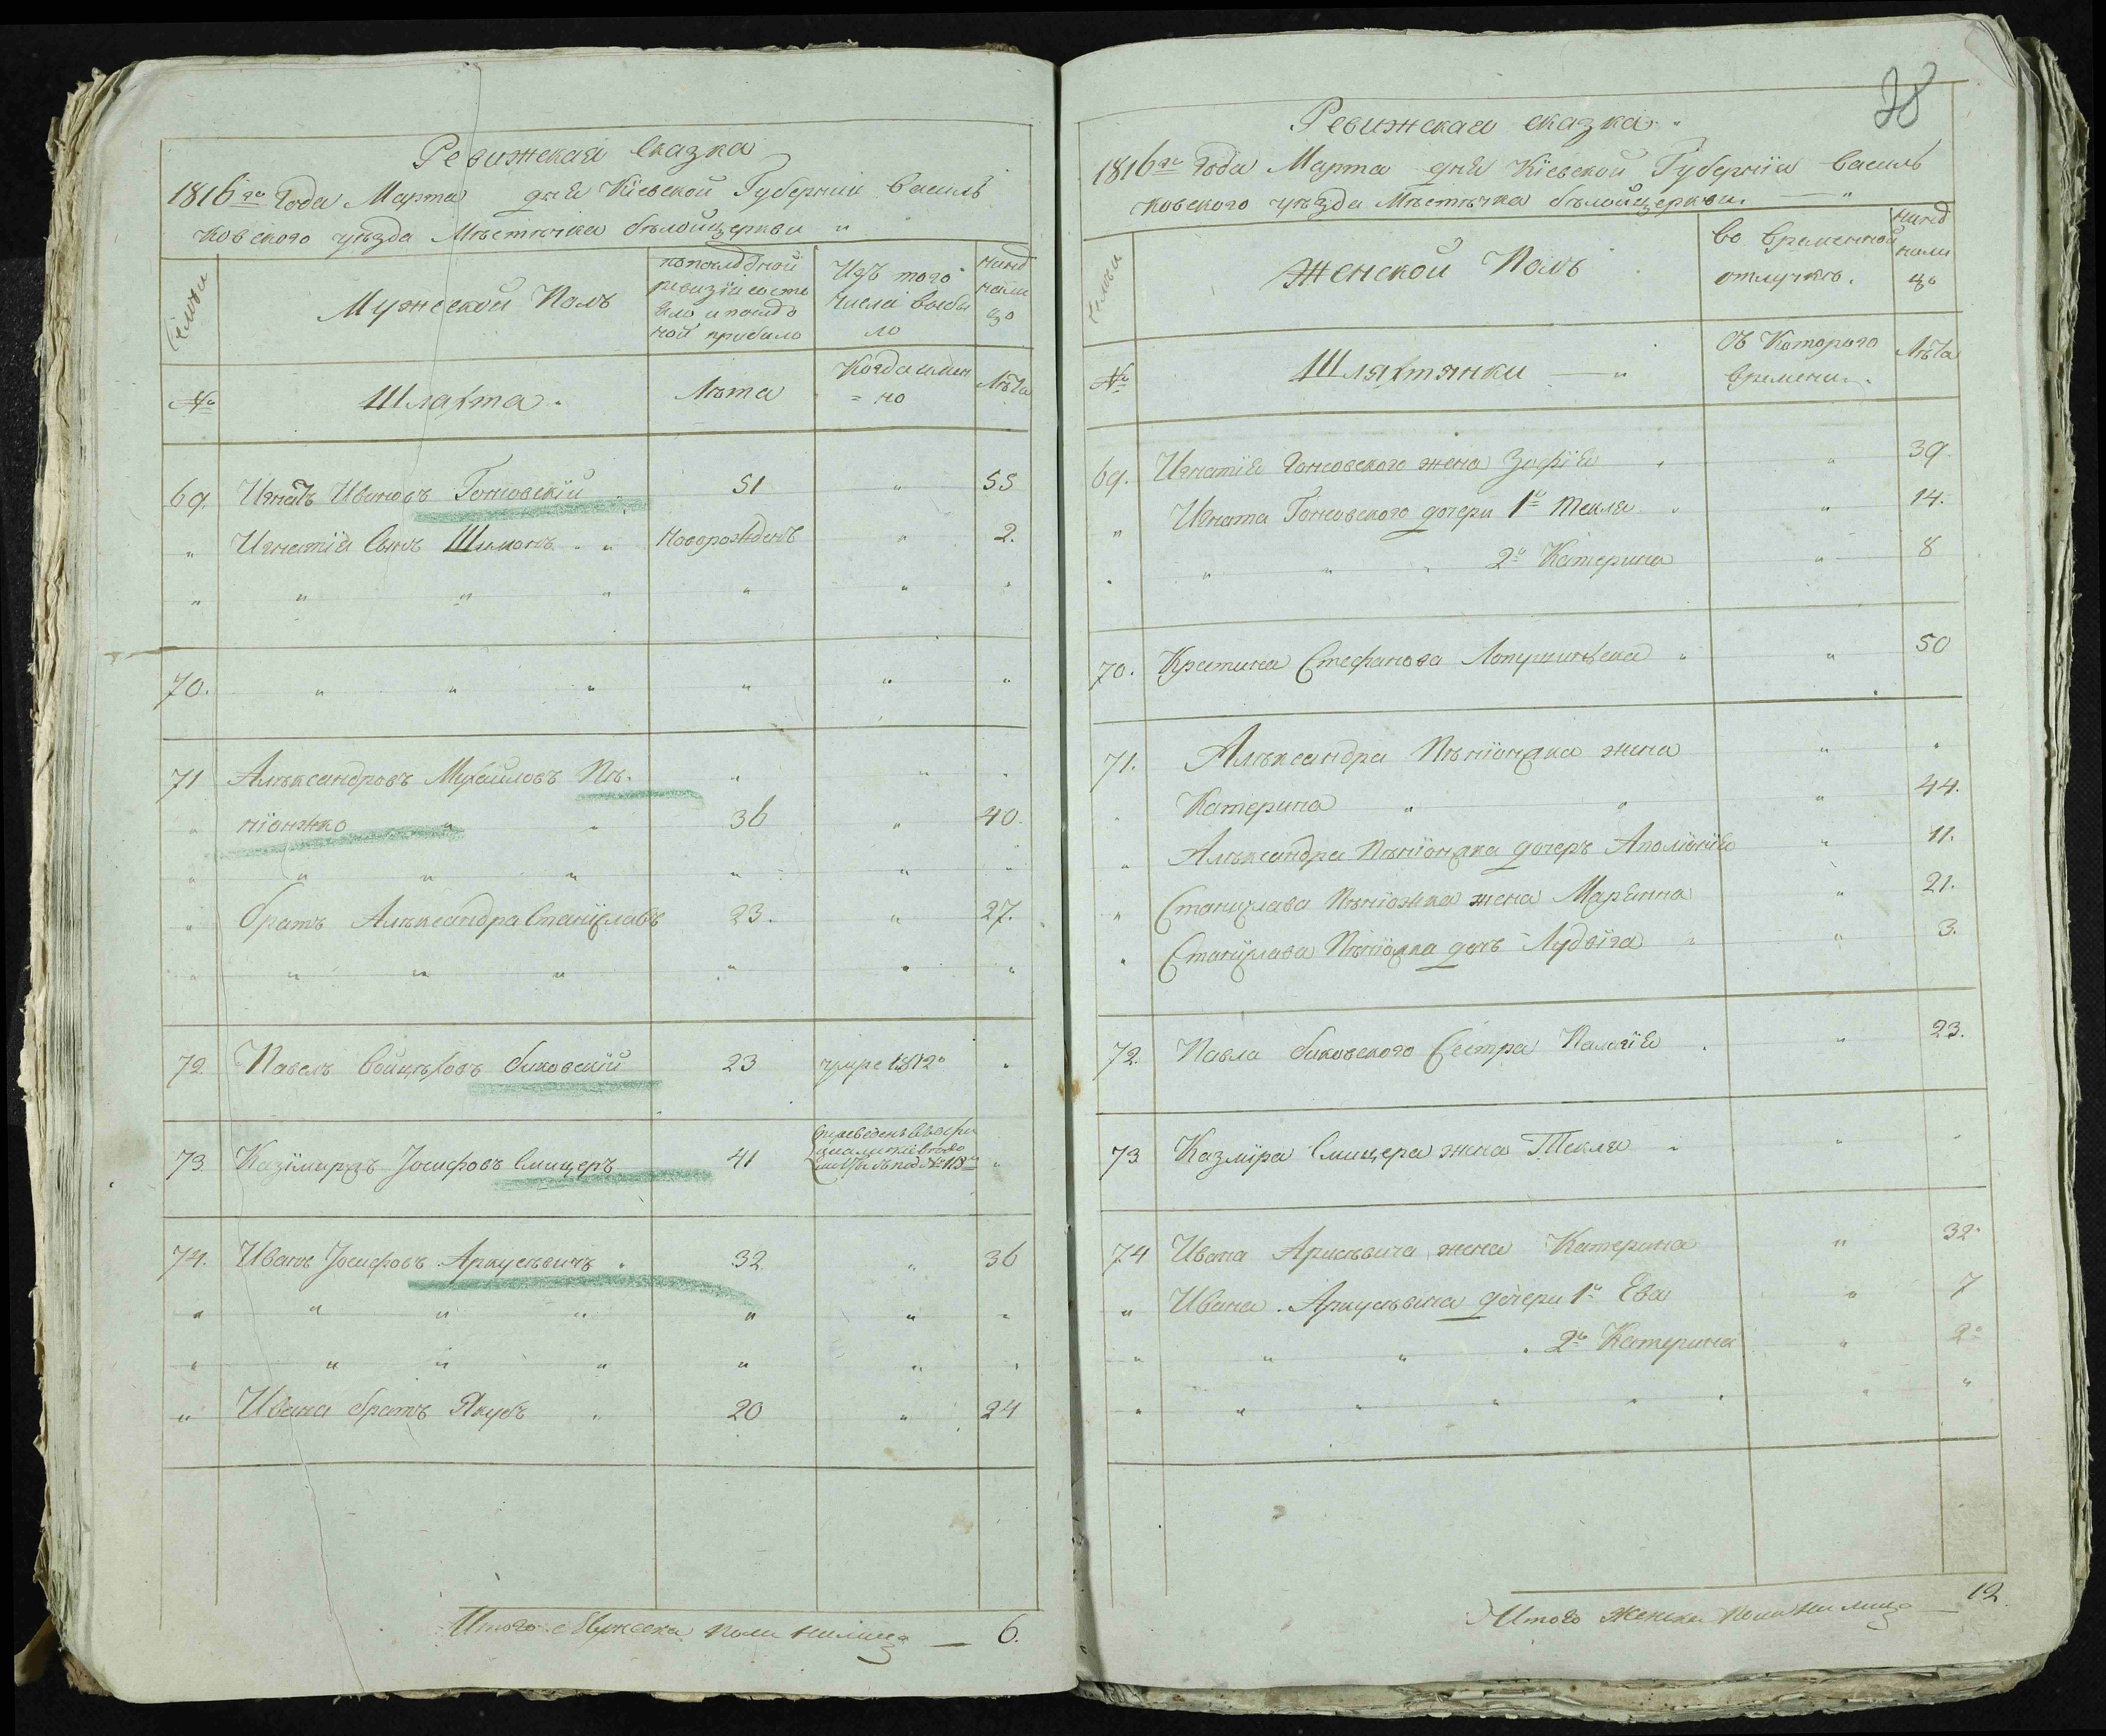 Ревижская сказка
1816го года Марта дня Кіевской Губерніи Василь
ковского уѣзда Мѣстѣчка бѣлойцеркви
Семьи
Мужеской Полъ
попослѣдной
ревизіи состо
яло и послѣ
ной прибыло
Изъ того
числа выбы
ло
нинѣ
нали
цо
№
Шляхта
Лѣта
Когда имен
но
Лѣта
69. Игнатъ Ивановъ Гонсовскій 51 " 55
" Игнатія Сынъ Шимонъ " Новорожденъ " 2.
70.
71 Алѣксандровъ Михайловъ Пѣ-
ніонжко " 36 " 40.
" братъ Алѣксандра Станиславъ 23. " 27.
72 Павелъ Войцѣховъ биковскій 23 умре 1812о
73 Казімиръ Іосифовъ Смицеръ 41
74. Иванъ Іосифовъ Аркусѣвичъ 32 " 36
" Ивана братъ Якубъ " 20 " 24
Итого Мужеска пола налицо — 6.
38
Ревижская сказка
1816го года Марта дня Кіевской Губерніи Василь
ковского уѣзда Мѣстѣчка бѣлойцеркви.
Семьи
Женской Полъ
во временной
отлучкѣ.
нинѣ
нали
цо
№
Шляхтянки
Съ Которого
времени.
Лѣта
69. Игнатія Гонсовского жена Зофія " 39
" Игната Гонсовского дочери 1я Текля " 14.
2я Катерина " 8
70. Крстина Стефанова Лопушинска " 50
71. Алѣксандра Пѣніонжка жена
Катерина " 44.
" Алѣксандра Пѣніонжка дочеръ Аполіонія " 11.
" Станислава Пѣніожка жена Маріянна " 21.
" Станислава Пѣніожка дочъ Лудвіга " 3.
72. Павла биковского Сестра Палагія " 23.
73 Казміра Смицера жена Текля
74 Ивана Аркусѣвича жена Катерина " 32
" Ивана Аркусѣвича дочери 1я Ева " 7
2я Катерина " 2
Итого Женска Пола налицо — 12.